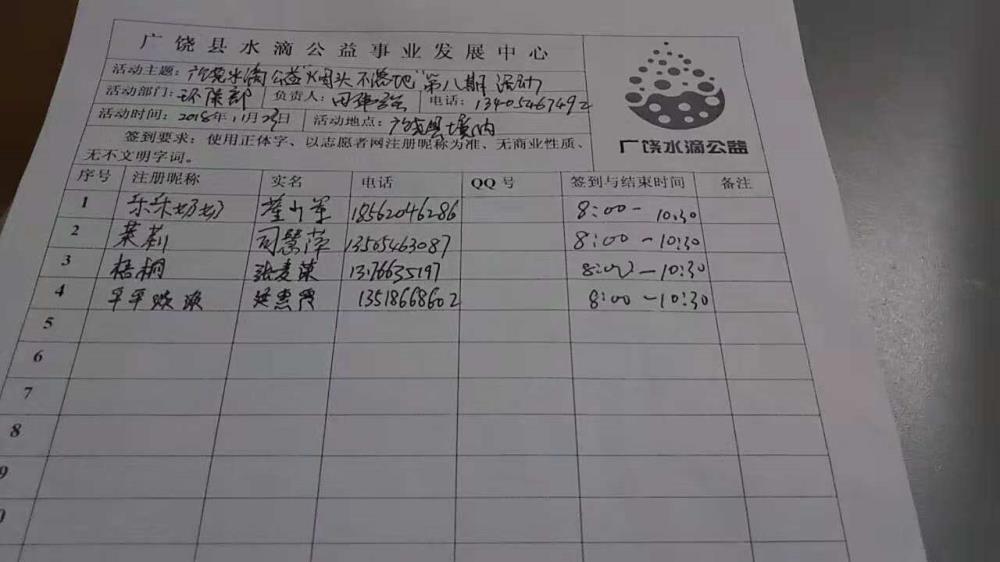 广饶县水滴公益事业发展中心
活动主题：广饶水滴公益"烟头不落地"第八期活动
活动部门：环保部 负责人： 电话：13405467492
活动时间：2018年11月23日 活动地点：广饶县境内
签到要求：使用正体字、以志愿者网注册昵称为准、无商业性质、
无不文明字词。
广饶水滴公益
序号 注册昵称 实名 电话 QQ号 签到与结束时间 备注
1 乐乐奶奶 18562046286 8:00-10:30
2 茉莉 司慧萍 13565463087 8:00-10:30
3 梧桐 张麦荣 1376635197 8:00-10:30
4 平平 延惠霞 13518668602 8:00-10:30
5
6
7
8
9